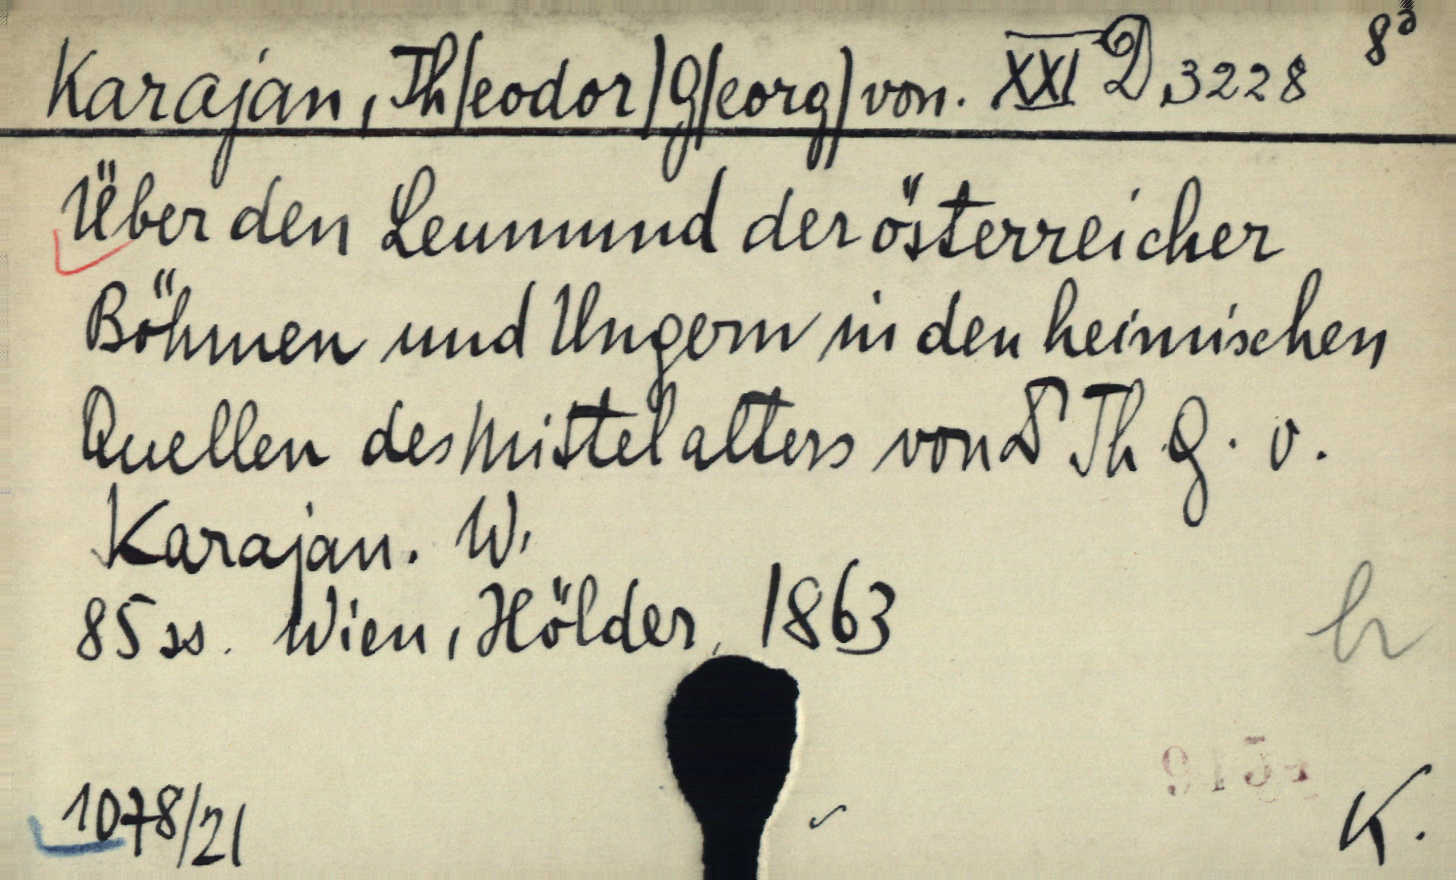 Karajan, Th/eodor/ G/eorg/ von. XXI D 3228 8°
Über den Leumund der österreicher
Böhmen und Ungern in den heimischen
Quellen des Mittelalters von Dr Th G. v.
Karajan. W.
85 ss. Wien, Hölder, 1863
1078/21
K.